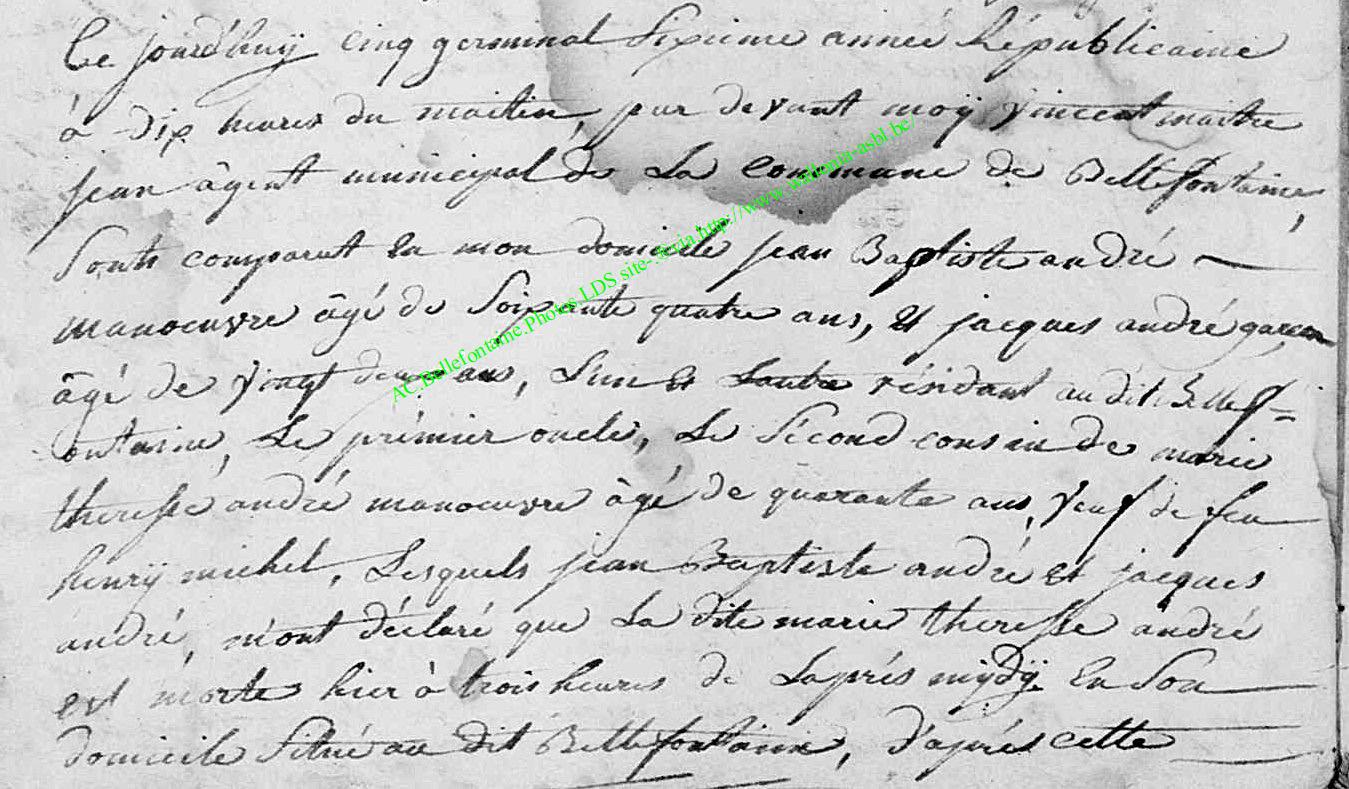 Ce jourd'huy cinq germinal Sixieme année Républicaine
à dix heures du maitin, par devant moÿ Vincent maitre
jean âgent municipal de La Commune de Bellefontaine,
Sonts comparut En mon domicile jean Baptiste andré
manoeuvre âgé de Soixente quatre ans, Et jacques andré garçon
âgé de Vingt deux ans, L'un Et Lautre résidant au dit Bellef=
ontaine, Le prémier oncle, Le Sécond cousin de marie
theresse andré manoeuvre âgé de quarante ans, Veuf de feu
henrÿ michel, Lesquels jean Baptiste andré Et jacques
andré, m'ont déclaré que La dite marie theresse andré
est morte hier à trois heures de Laprés mÿdÿ En Son
domicile Situé au dit Bellefontaine, d'aprés cette
AC.Bellefontaine.Photos.LDS site- http://www.wallonia-asbl.be/